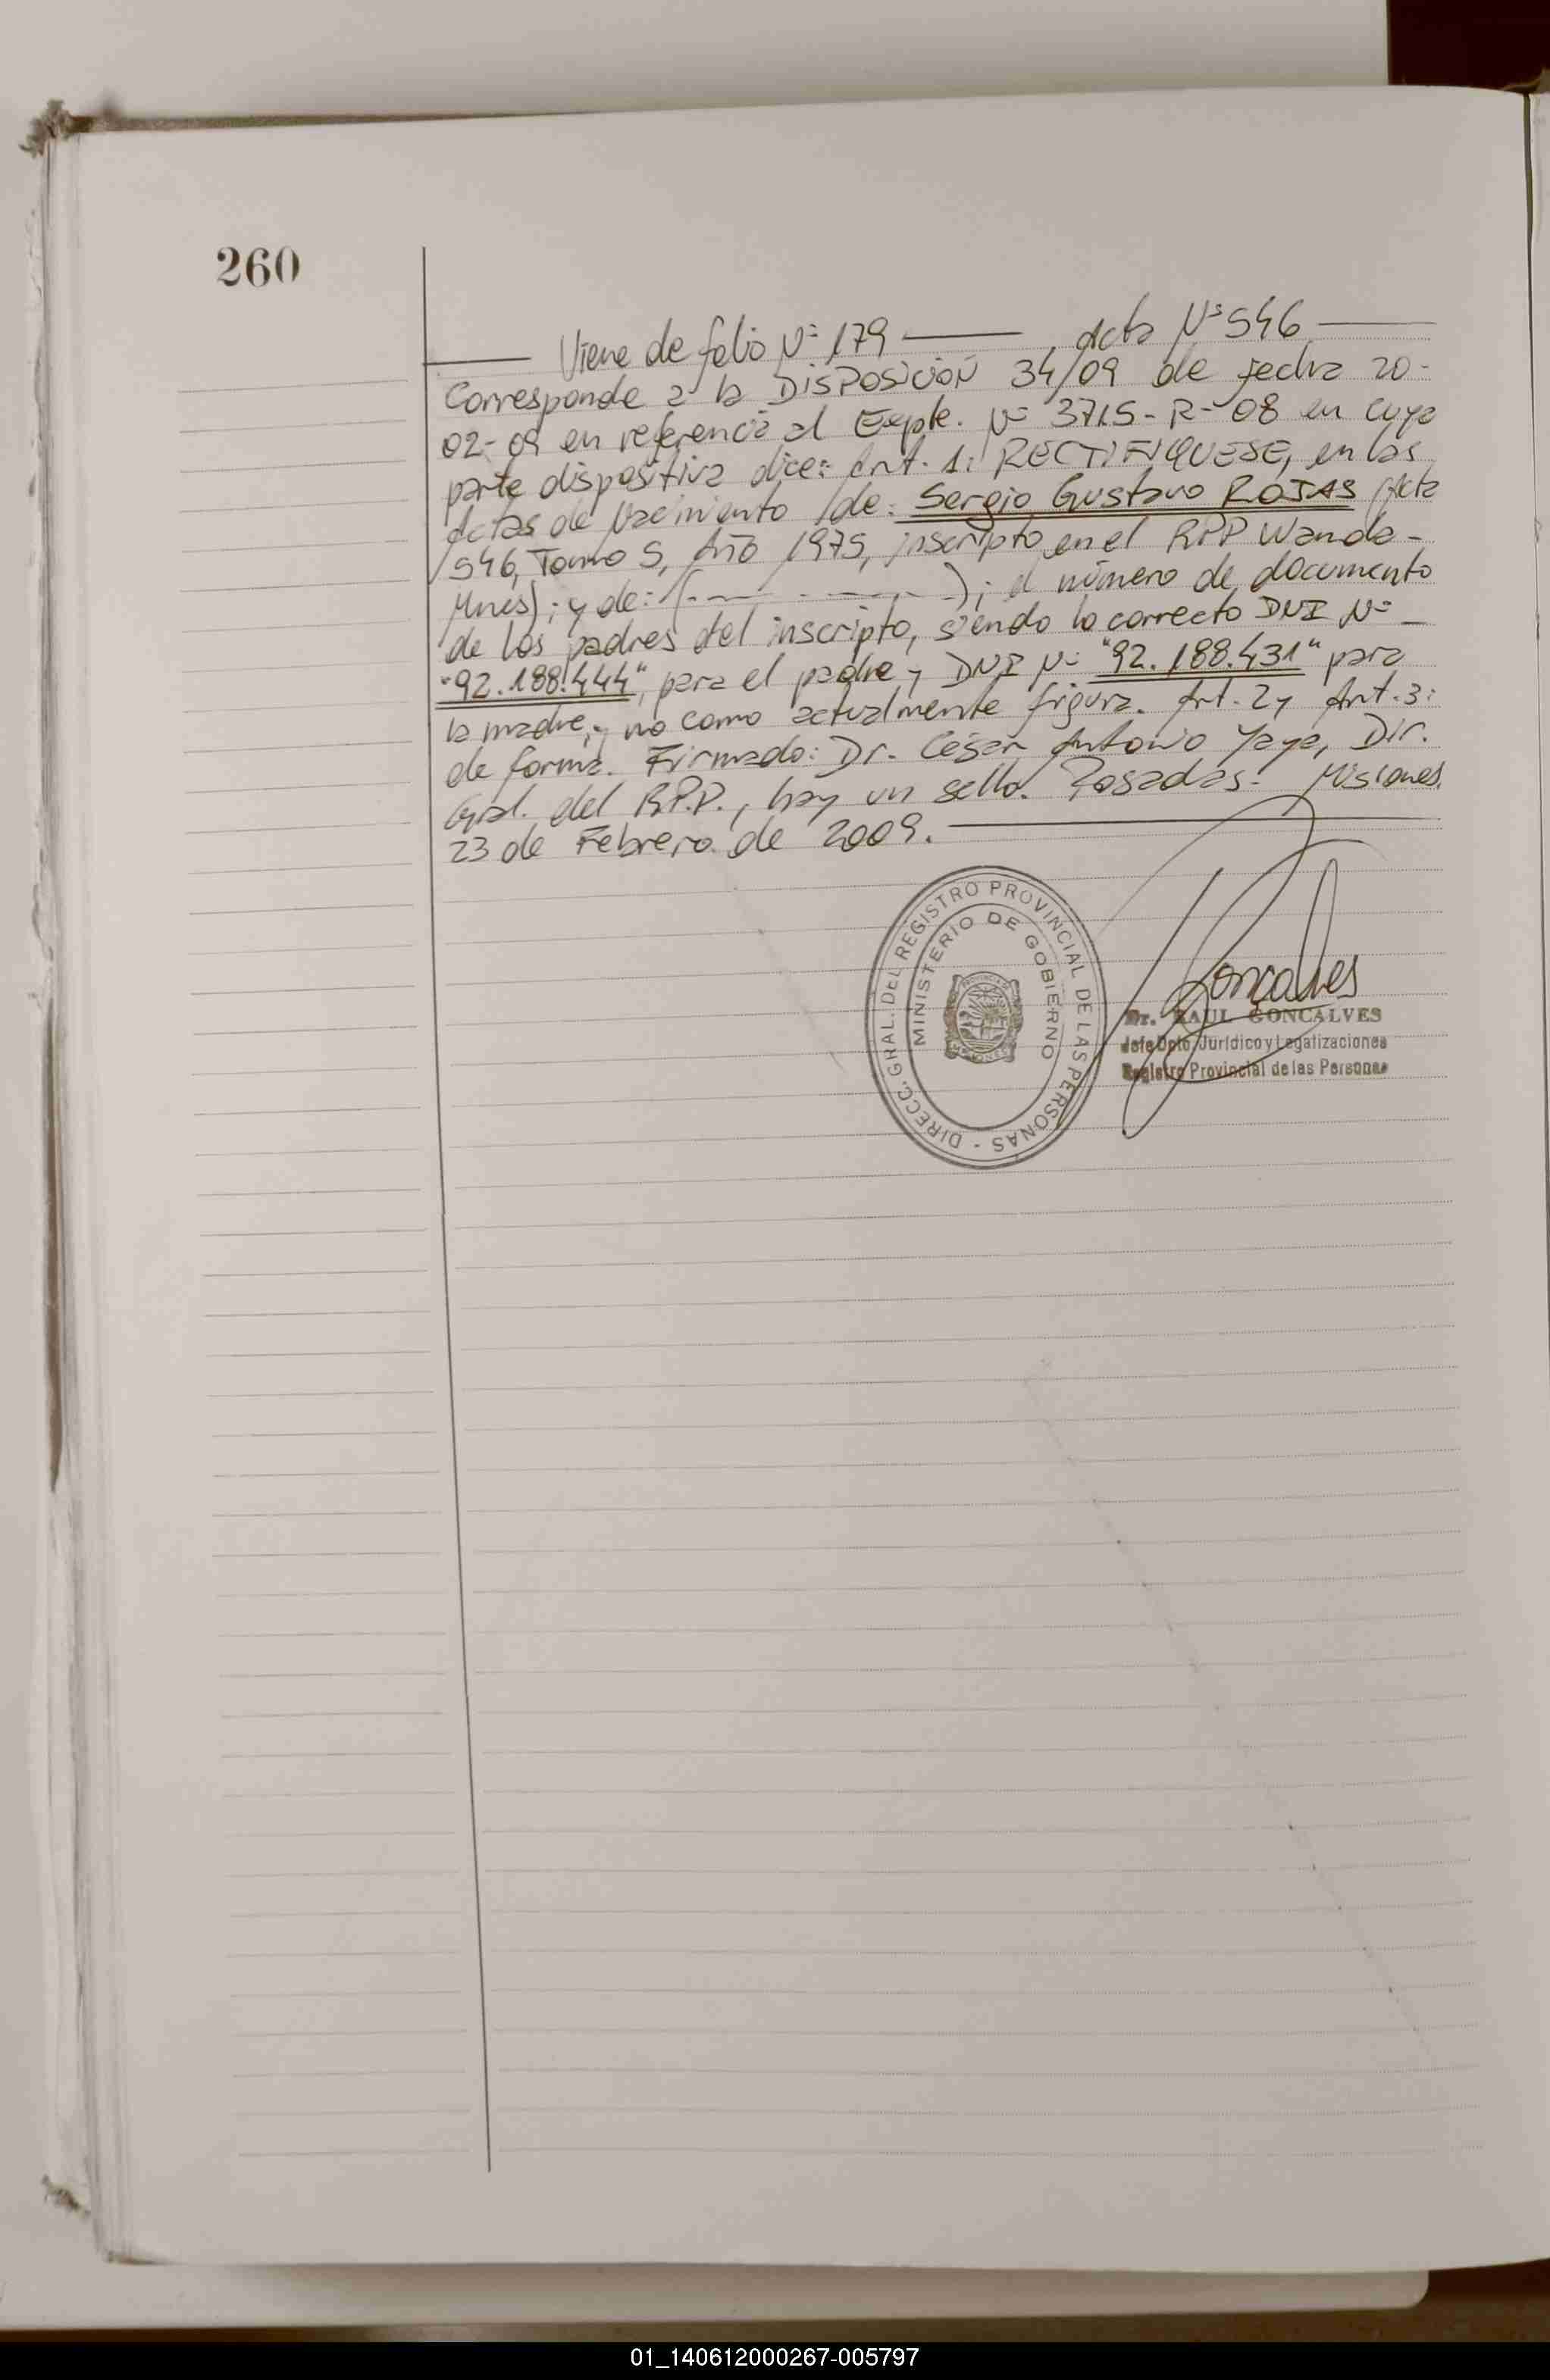 260
Viene de folio Nº 179 ——— Acta Nº 546 ———
Corresponde a la DISPOSICIÓN 34/09 de fecha 20-
02-09 en referencia al Expte. Nº 3715-R-08 en cuya
parte dispositiva dice: Art. 1: RECTIFIQUESE, en las
Actas de Nacimiento de: Sergio Gustavo ROJAS (Acta
546, Tomo 5, Año 1975, inscripto en el RPP Wanda-
Mnes); y de: (- — - — - — -); el número de documento
de los padres del inscripto, siendo lo correcto DNI Nº
"92.188.444", para el padre y DNI Nº "92.188.431" para
la madre, y no como actualmente figura. Art. 2 y Art. 3:
de forma. Firmado: Dr. César Antonio Yaya, Dir.
Gral. del R.P.P., hay un sello. Posadas- Misiones.
23 de Febrero de 2009. ———
DIRECC. GRAL. DEL REGISTRO PROVINCIAL DE LAS PERSONAS -
MINISTERIO DE GOBIERNO
Goncalves
Dr. RAUL GONCALVES
Jefe Dpto. Jurídico y Legalizaciones
Registro Provincial de las Personas
01_140612000267-005797